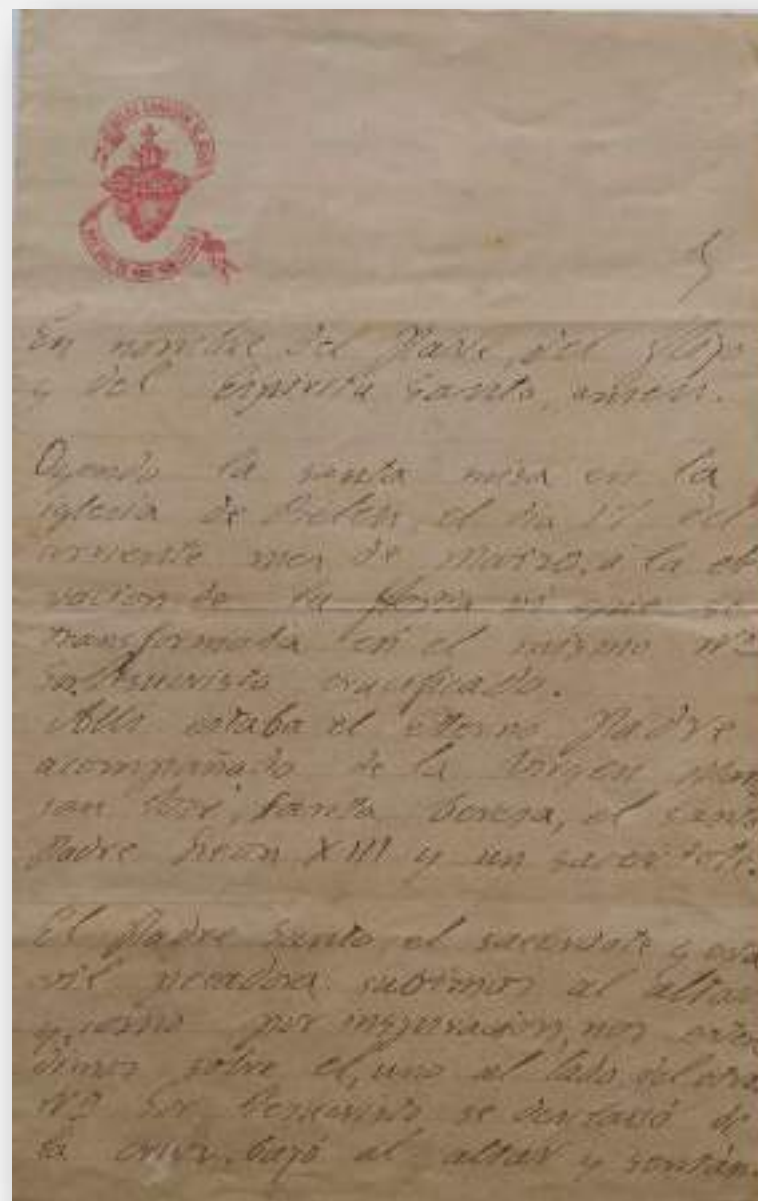 En nombre del Padre, del Hijo
y del Espiritu Santo, amen.
Oyendo la santa misa en la
iglesia de Belén, el dia del
corriente mes de marzo, á la ele
vacion de la
transformada en el mismo Ntro
Sor Jesucristo crucificado.
Alli estaba el eterno Padre
acompañado de la Virgen
san José, Santa Teresa, el santo
Padre Leon XIII y un sacerdote.
El Padre Santo, el sacerdote y esta
vil pecadora subimos al altar
y, como por inspiracion, nos exten
dimos sobre el, uno al lado del otro
Ntro Sor Jesucristo se desclavó de
la cruz, bajó al altar y